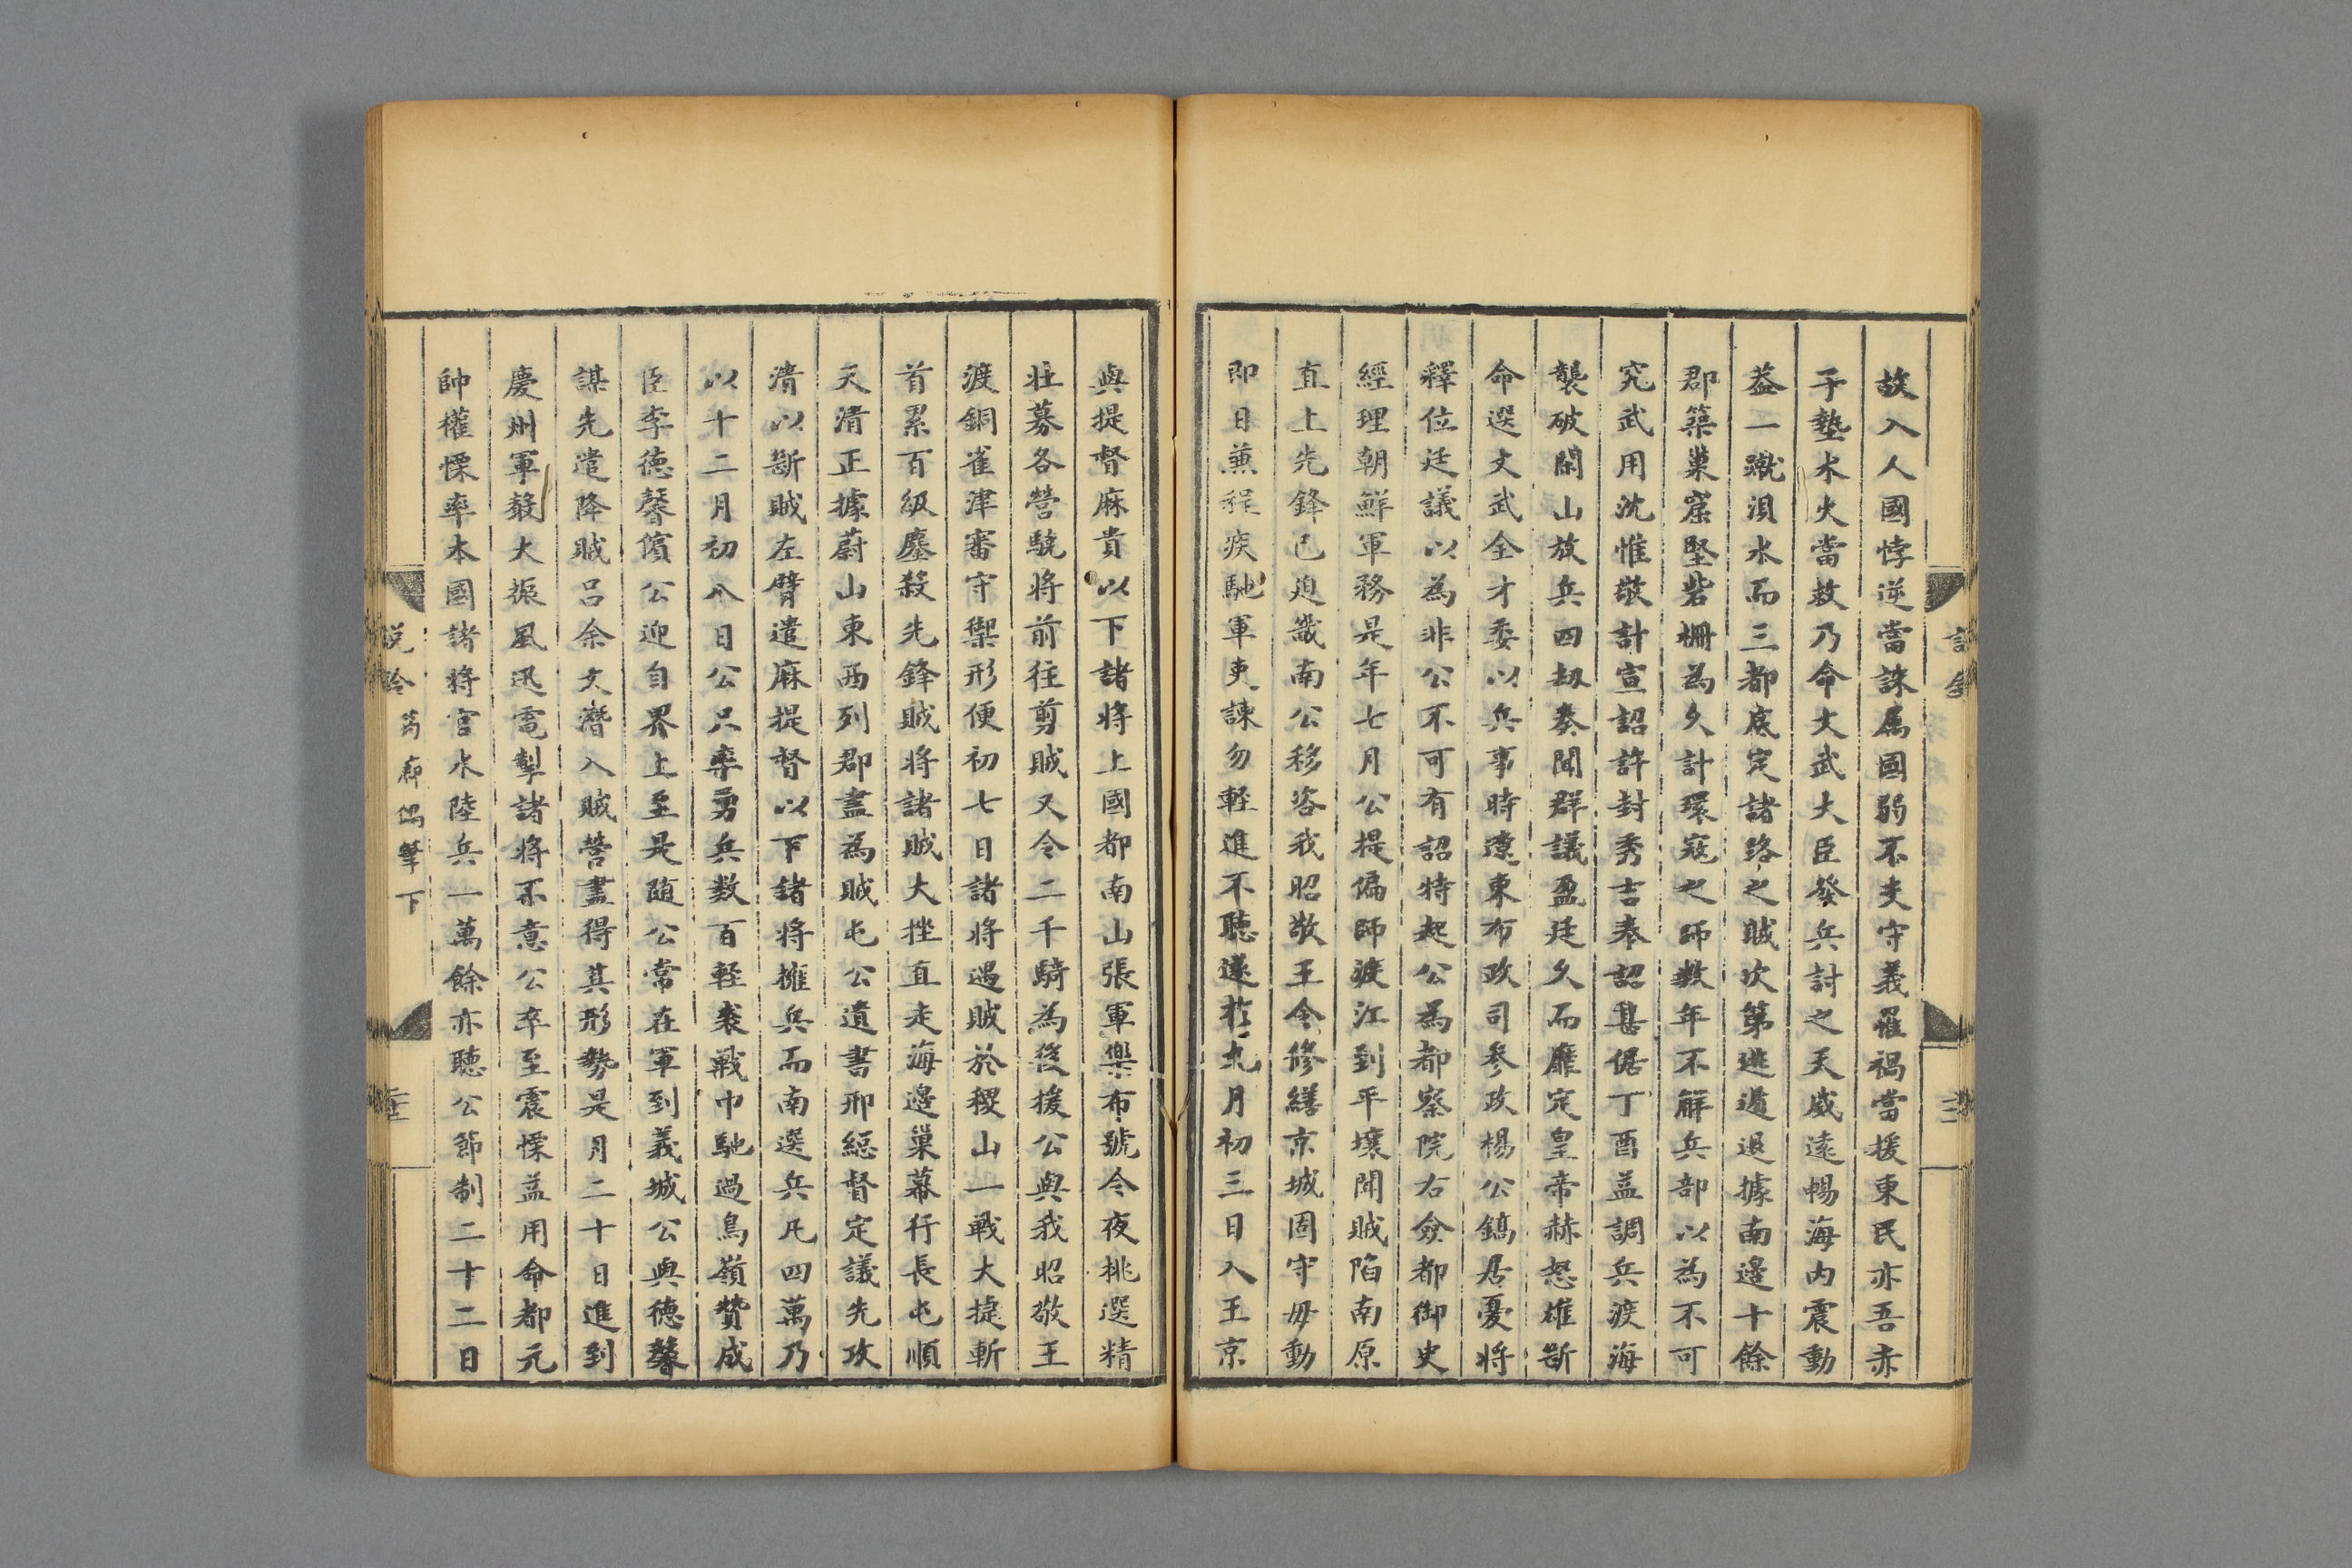 故入人國悖逆當誅属國弱不支守義罹禍當援東民亦吾赤
子墊水火當救乃命文武大臣發兵討之天威遠暢海内震動
葢一蹴浿水而三都底定諸路之賊次第逃遁退據南邊十餘
郡築巢窟堅砦柵為久計環冦之師数年不觧兵部以為不可
究武用沈惟敬計宣詔許封秀吉奉詔甚倨丁酉益調兵渡海
襲破閑山放兵四刼奏聞群議盈廷久而靡定皇帝赫怒雄斷
命選文武全才委以兵事時遼東布政司参政楊公鎬居憂將
釋位廷議以為非公不可有詔特起公為都察院右僉都御史
經理朝鮮軍務是年七月公提偏師渡江到平壤聞賊陷南原
直上先鋒已迫畿南公移咨我昭敬王令修繕京城固守毋動
即日兼程疾馳軍吏諫勿軽進不聽遂於九月初三日入王京
與提督麻貴以下諸將上國都南山張軍樂布號令夜挑選精
壮募各營驍将前往剪賊又令二千騎為後援公與我昭敬王
渡銅雀津審守禦形便初七日諸将遇賊於稷山一戰大捷斬
首累百級鏖殺先鋒賊將諸賊大挫直走海邊巢幕行長屯順
天清正據蔚山東西列郡盡為賊屯公遺書邢緫督定議先攻
清以斷賊左臂遣麻提督以下諸将擁兵而南選兵凡四萬乃
以十二月初八日公只率勇兵数百軽裘戰巾馳過鳥嶺贊成
臣李德馨儐公迎自界上至是随公常在軍到義城公與德馨
謀先遣降賊呂余文潛入賊營盡得其形勢是月二十日進到
慶州軍聲大振風迅電掣諸将不意公卒至震慄益用命都元
帥權慄率本國諸将官水陸兵一萬餘亦聽公節制二十二日
説鈴
筠廊偶筆下